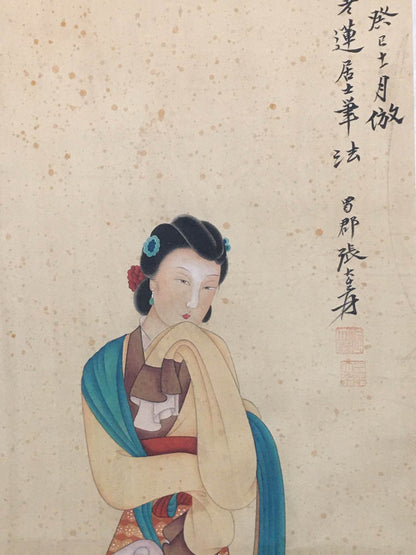 癸巳十一月倣
老蓮居士筆法
蜀郡張大千爰